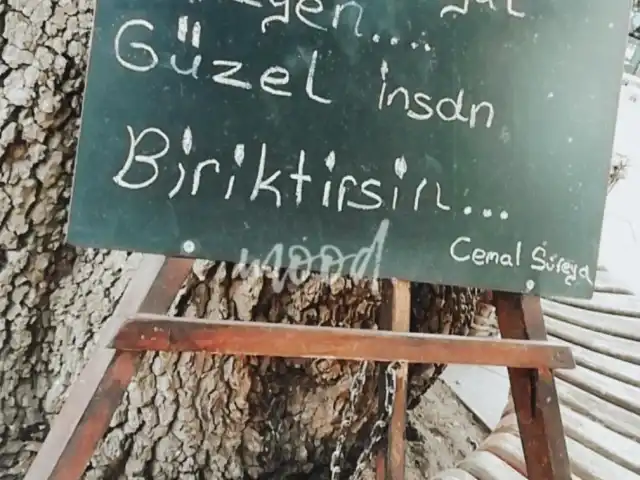 Güzel insan
Biriktirsin...
mood
Cemal Süreya